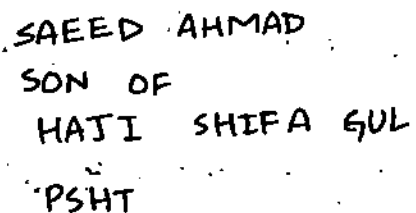 SAEED AHMAD
SON OF
HAJI SHIFA GUL
PSHT